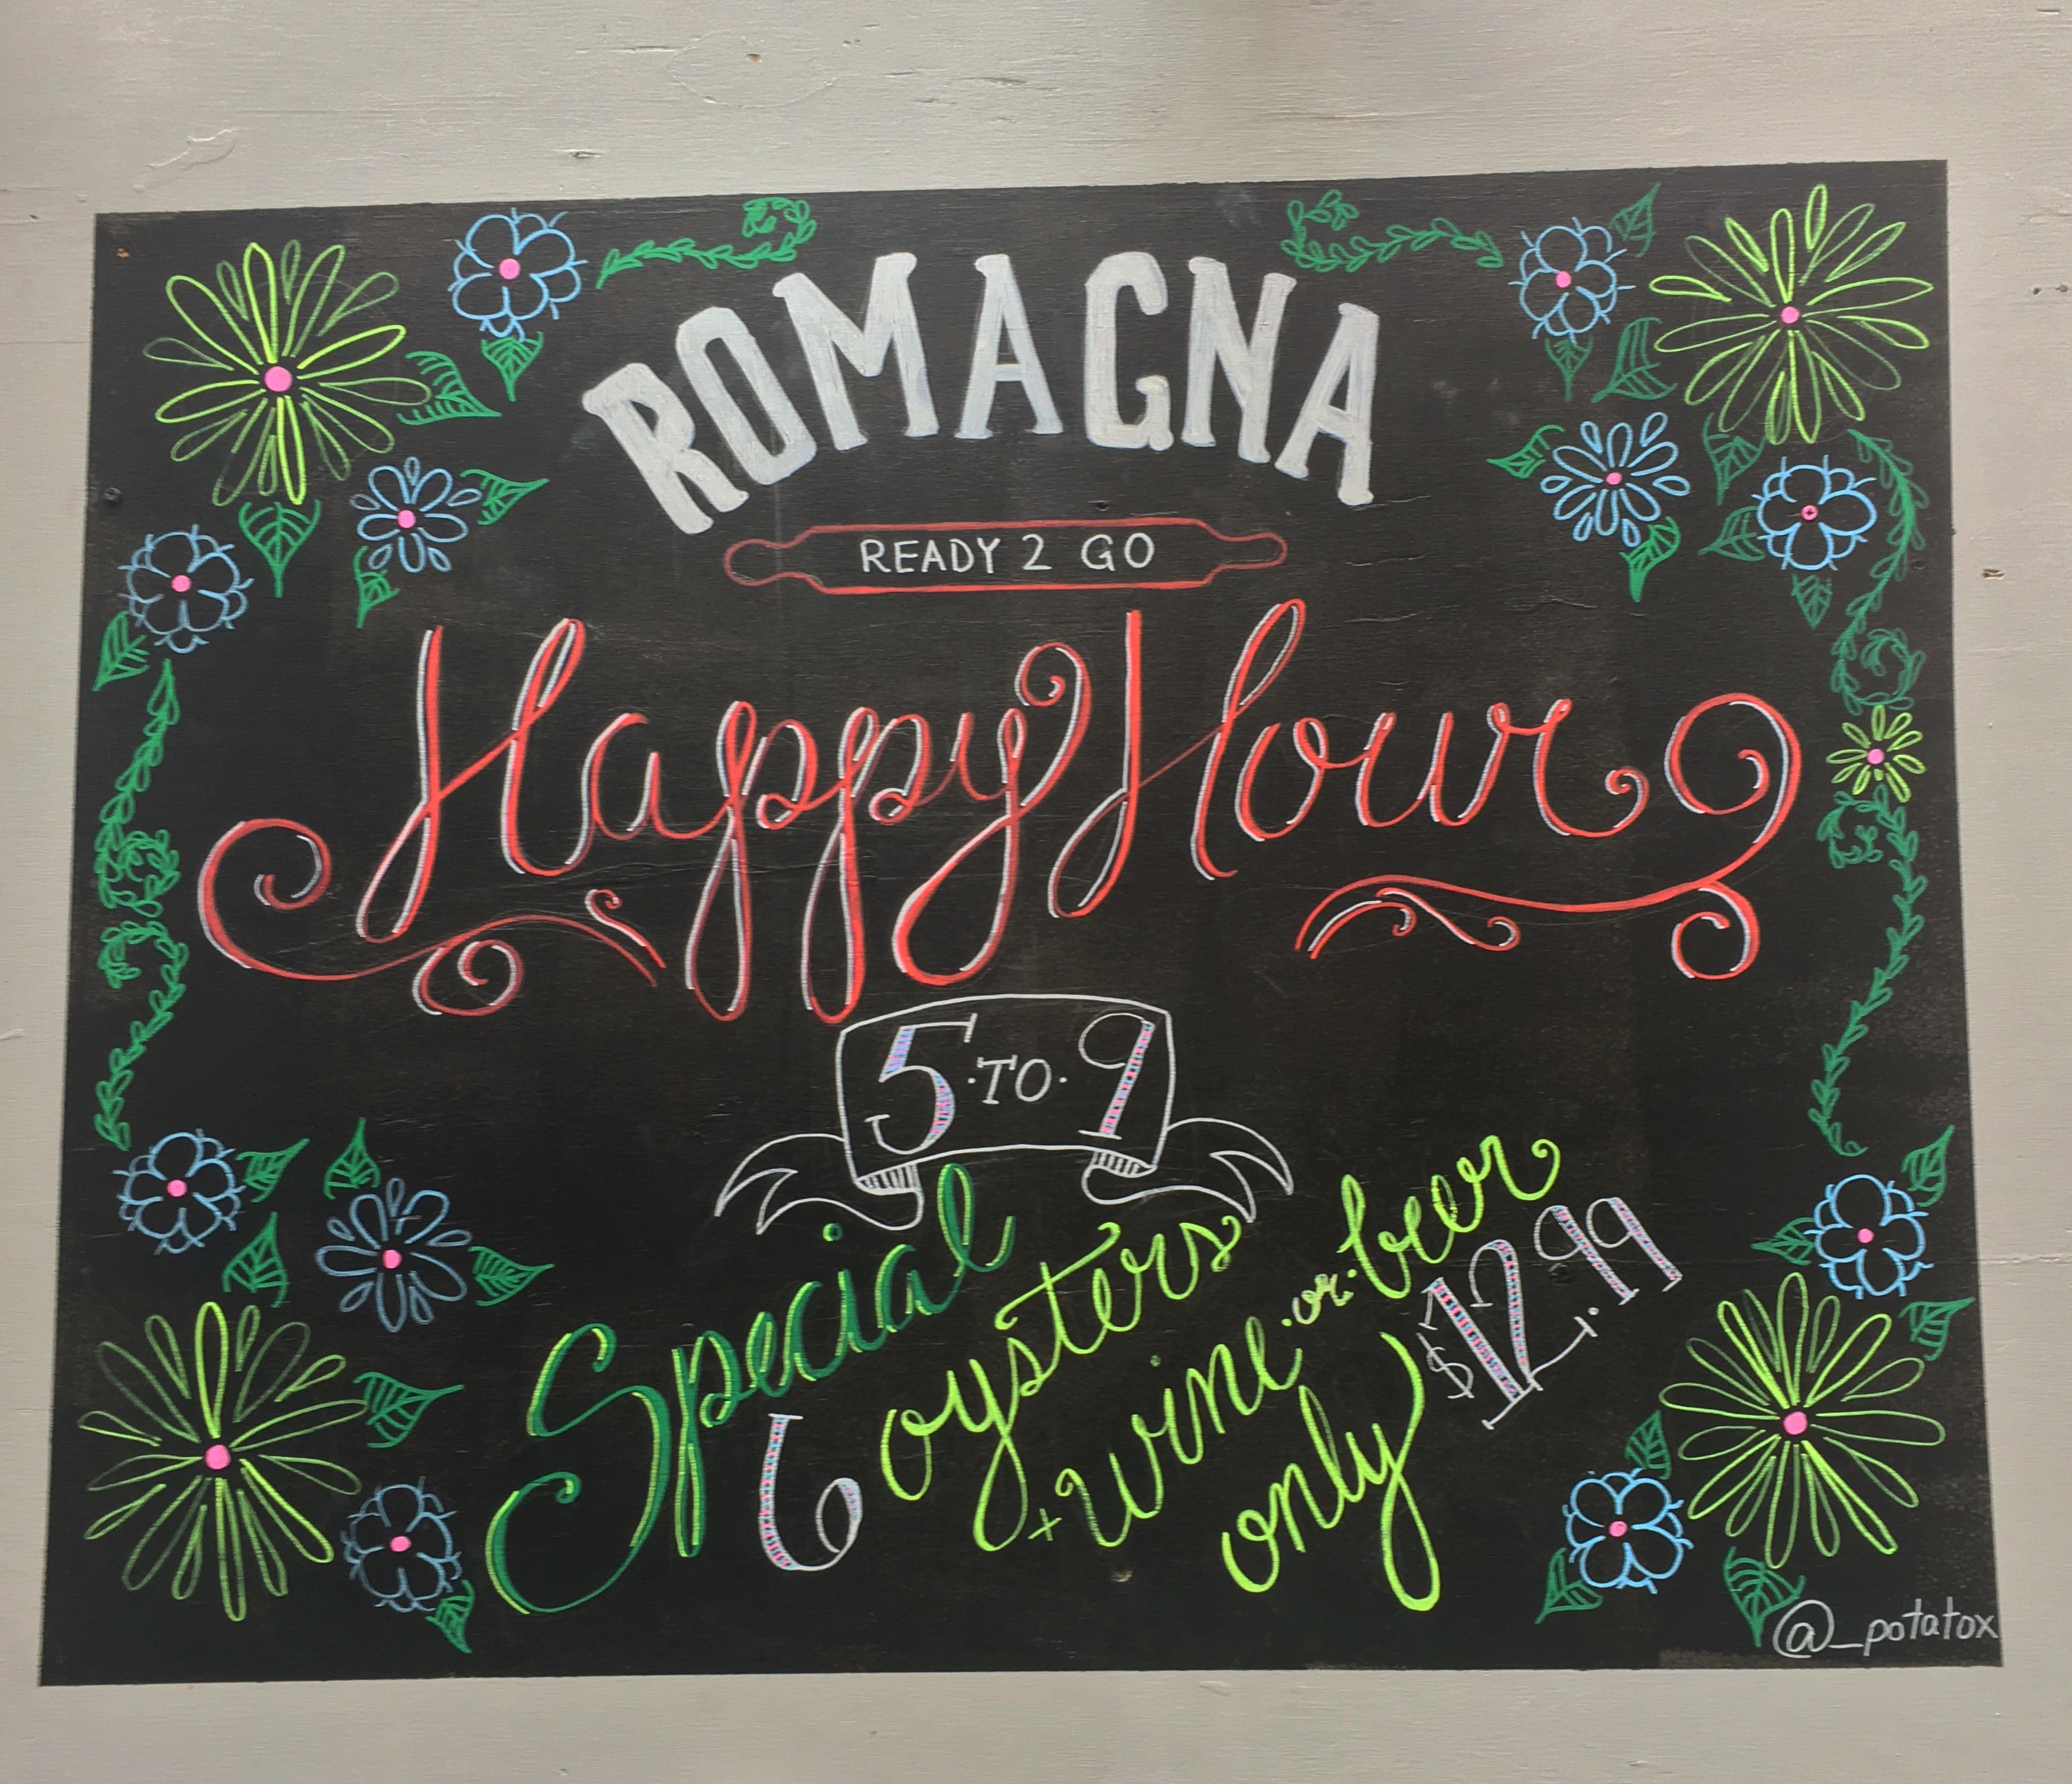 ROMAGNA
READY 2 GO
Happy Hour
5·TO·9
Special
6 oysters
+ wine·or·beer
only $12.99
@_potatox